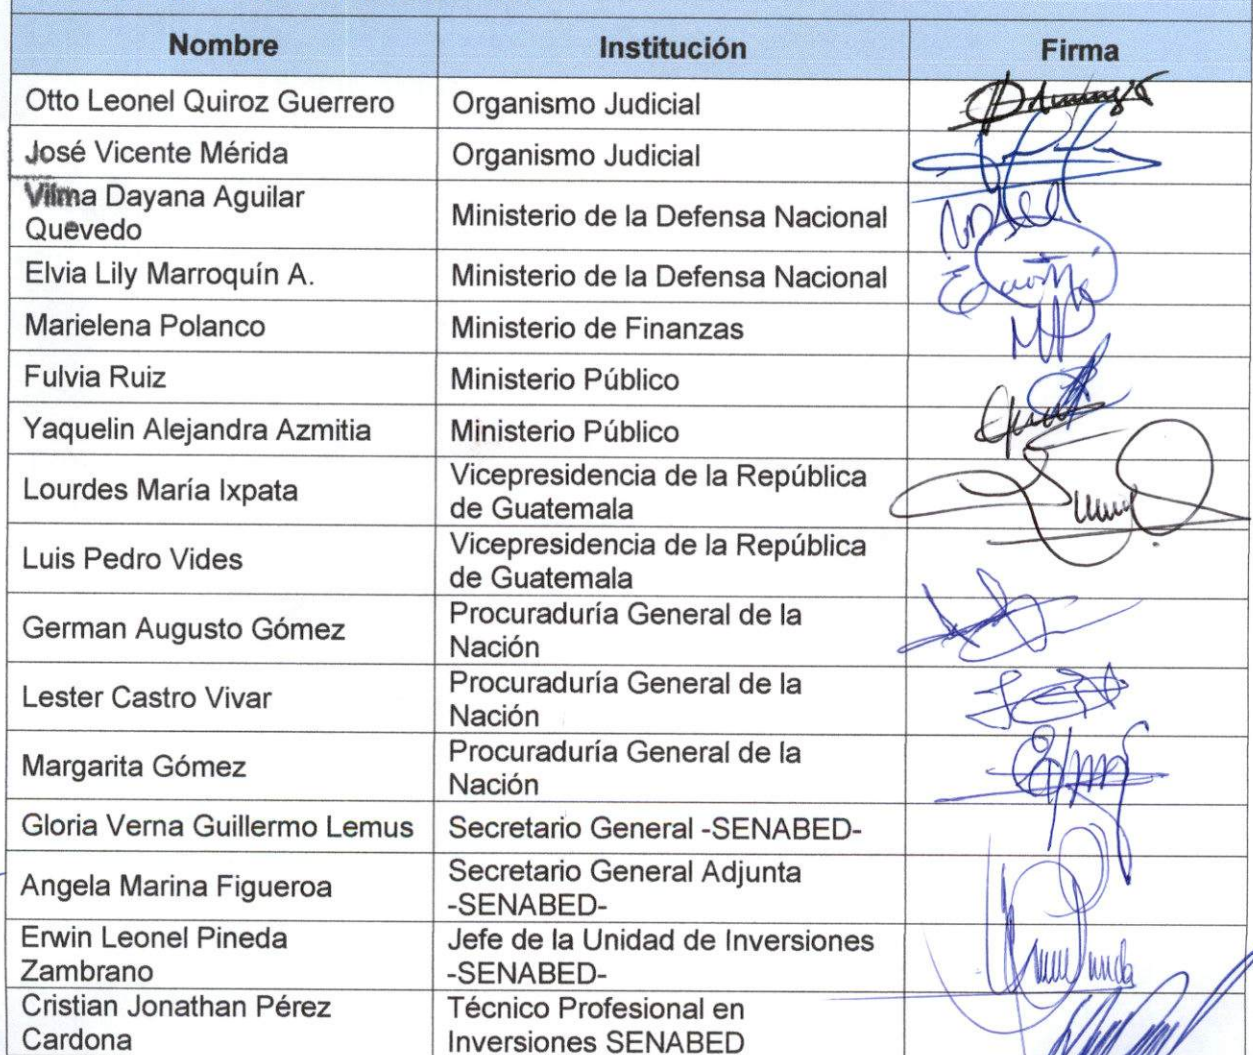 Nombre Institución Firma
Otto Leonel Quiroz Guerrero Organismo Judicial
José Vicente Mérida Organismo Judicial
Vilma Dayana Aguilar
Quevedo
Ministerio de la Defensa Nacional
Elvia Lily Marroquín A. Ministerio de la Defensa Nacional
Marielena Polanco Ministerio de Finanzas
Fulvia Ruiz Ministerio Público
Yaquelin Alejandra Azmitia Ministerio Público
Lourdes María Ixpata
Vicepresidencia de la República
de Guatemala
Luis Pedro Vides
Vicepresidencia de la República
de Guatemala
German Augusto Gómez
Procuraduría General de la
Nación
Lester Castro Vivar
Procuraduría General de la
Nación
Margarita Gómez
Procuraduría General de la
Nación
Gloria Verna Guillermo Lemus Secretario General -SENABED-
Angela Marina Figueroa
Secretario General Adjunta
-SENABED-
Erwin Leonel Pineda
Zambrano
Jefe de la Unidad de Inversiones
-SENABED-
Cristian Jonathan Pérez
Cardona
Técnico Profesional en
Inversiones SENABED